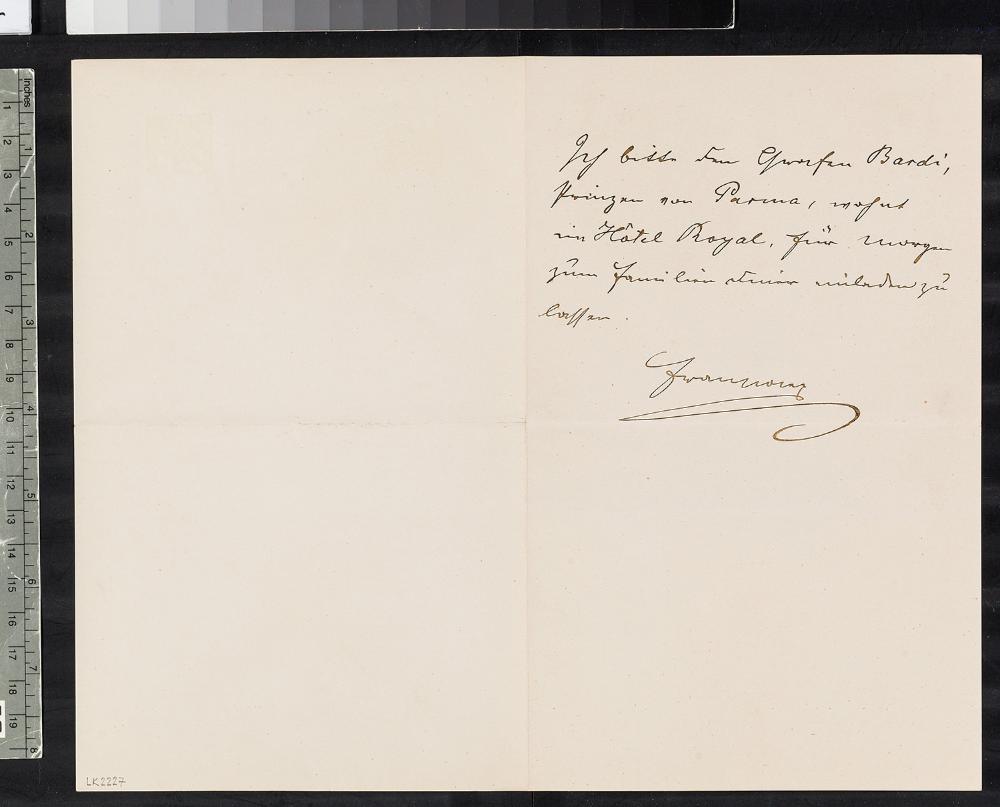 Ich bitte den Grafen Bardi,
Prinzen von Parma, wohnt
im Hôtel Royal, für morgen
zum Familien diner einladen zu
lassen.
LK2227
inches
1 2 3 4 5 6 7 8
1 2 3 4 5 6 7 8 9 10 11 12 13 14 15 16 17 18 19